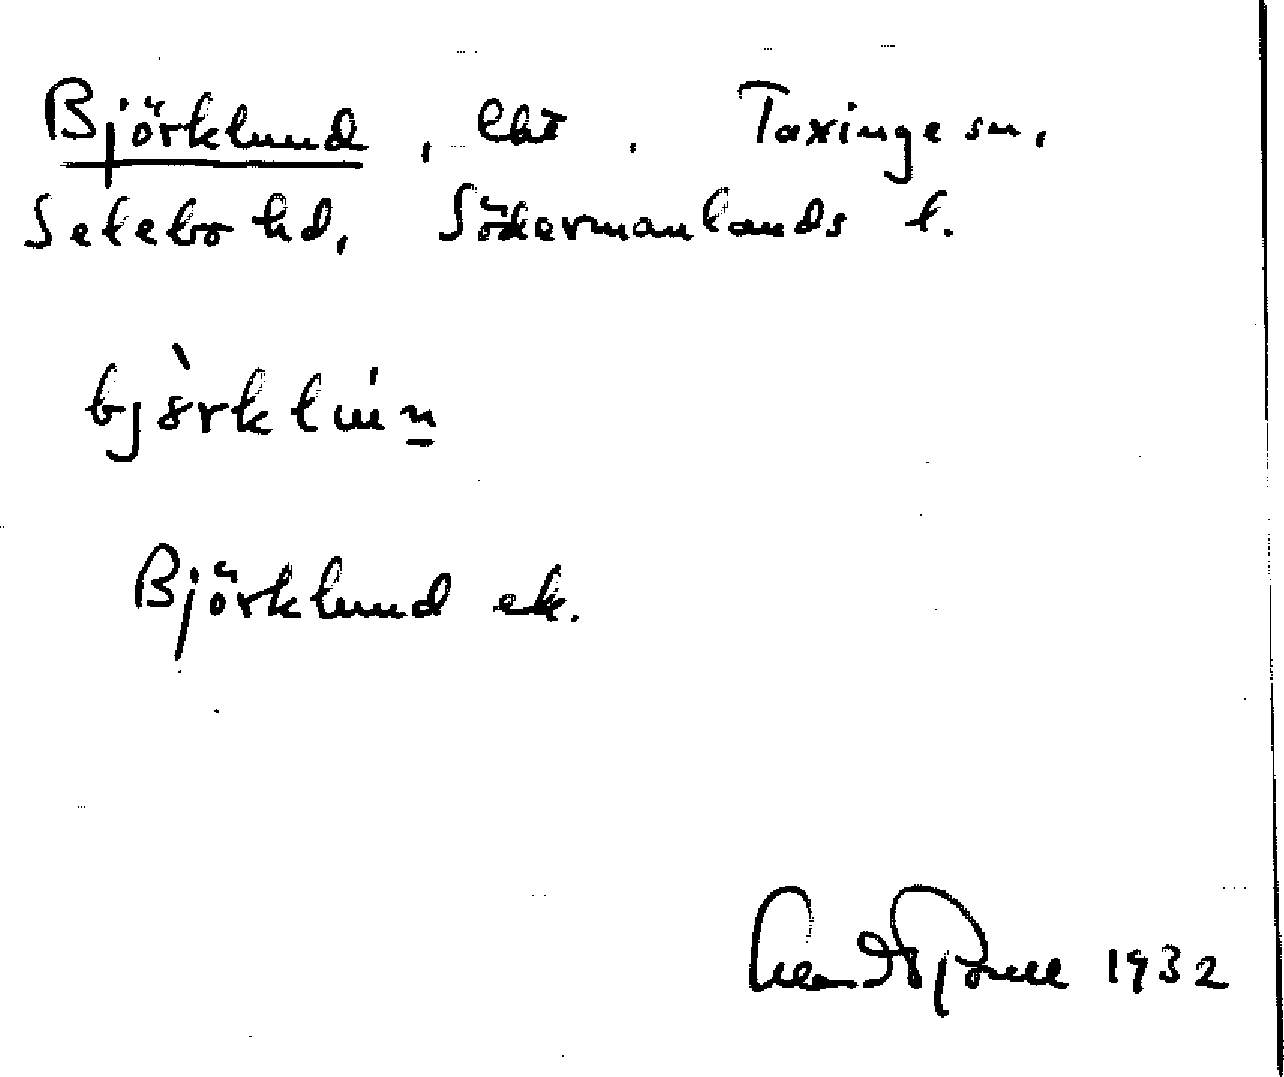 Björklund, lht. Taxinge sn.
Selebo hd, Södermanlands l.
björklún
Björklund ek.
1932